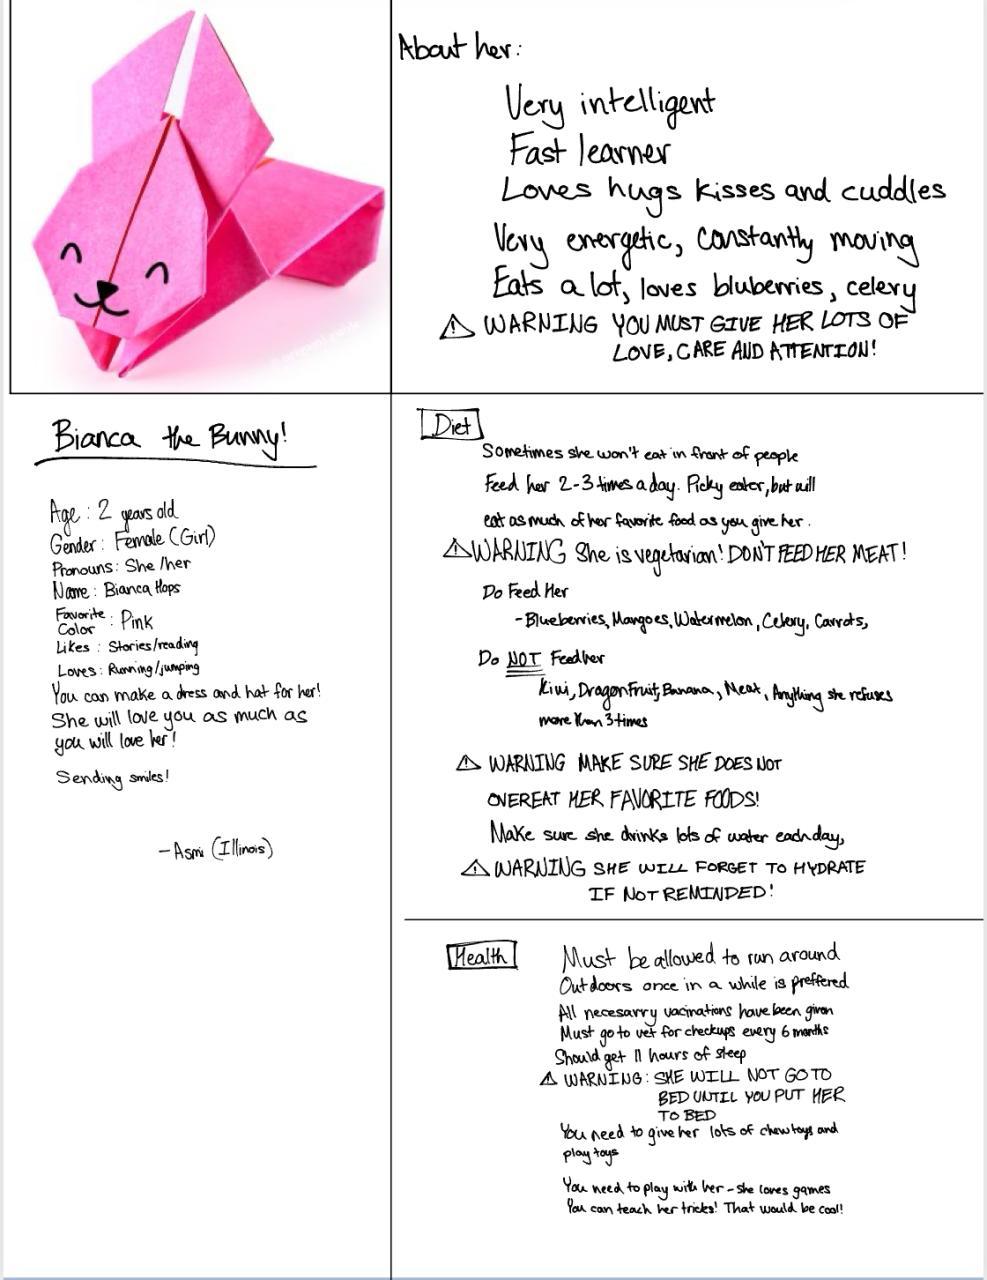 About her:
Very intelligent
Fast learner
Loves hugs kisses and cuddles
Very energetic, constantly moving
Eats a lot, loves bluberries, celery
⚠ WARNING YOU MUST GIVE HER LOTS OF
LOVE, CARE AND ATTENTION!
Bianca the Bunny!
Age: 2 years old
Gender: Female (Girl)
Pronouns: She/her
Name: Bianca Hops
Favorite Color: Pink
Likes: Stories/reading
Loves: Running/jumping
You can make a dress and hat for her!
She will love you as much as
you will love her!
Sending smiles!
-Asmi (Illinois)
Diet
Sometimes she won't eat in front of people
Feed her 2-3 times a day. Picky eater, but will
eat as much of her favorite food as you give her.
⚠ WARNING She is vegetarian! DON'T FEED HER MEAT!
Do Feed Her
-Blueberries, Mangoes, Watermelon, Celery, Carrots,
Do NOT Feed her
Kiwi, Dragon Fruit, Banana, Meat, Anything she refuses
more than 3 times
⚠ WARNING MAKE SURE SHE DOES NOT
OVEREAT HER FAVORITE FOODS!
Make sure she drinks lots of water each day,
⚠ WARNING SHE WILL FORGET TO HYDRATE
IF NOT REMINDED!
Health
Must be allowed to run around
Outdoors once in a while is preffered
All necesarry vacinations have been given
Must go to vet for checkups every 6 months
Should get 11 hours of sleep
⚠ WARNING: SHE WILL NOT GO TO
BED UNTIL YOU PUT HER
TO BED
You need to give her lots of chew toys and
play toys
You need to play with her - she loves games
You can teach her tricks! That would be cool!